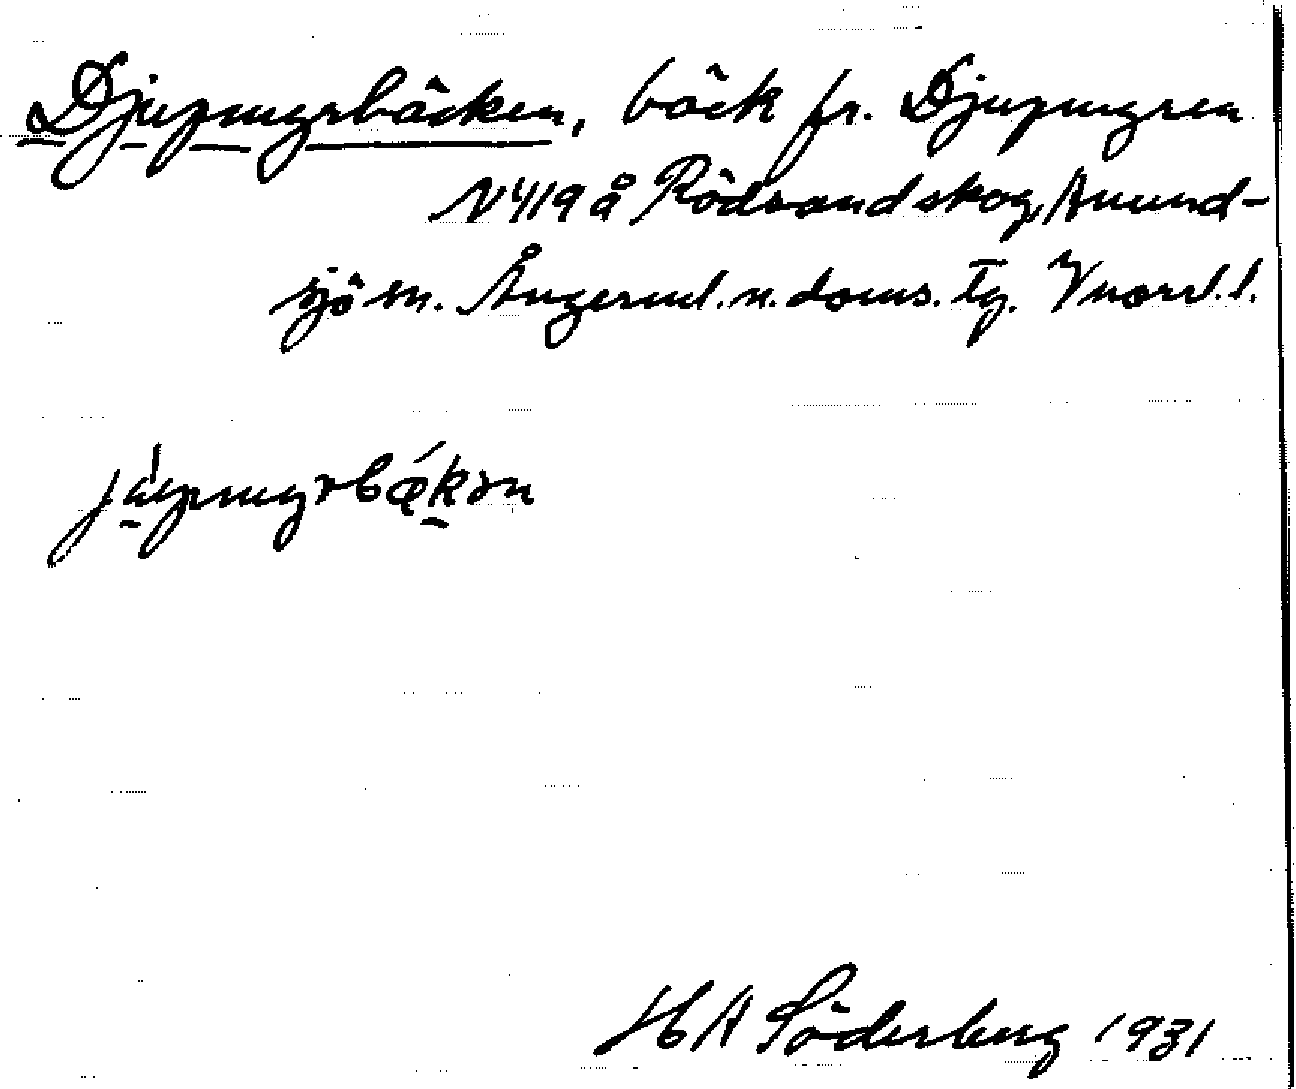 Djupmyrbäcken, bäck fr. Djupmyren
N 419 å Rödvandskog, Anund-
sjö sn. Ångerml. n. doms. Tg. Vnorrl. l.
HA Söderberg 1931